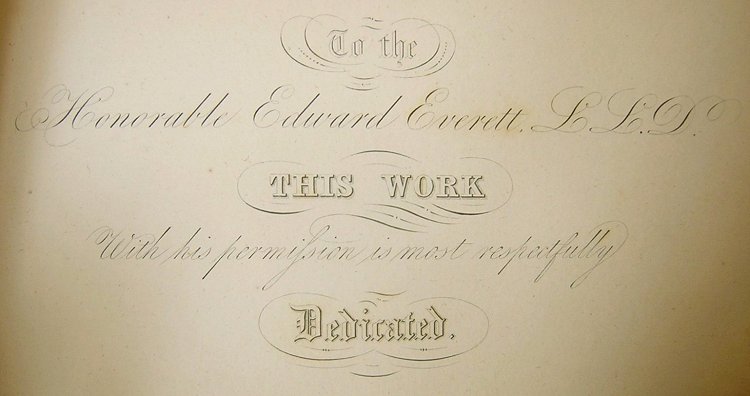 To the
Honorable Edward Everett, L.L.D.
THIS WORK
With his permiſsion is most respectfully
Dedicated.